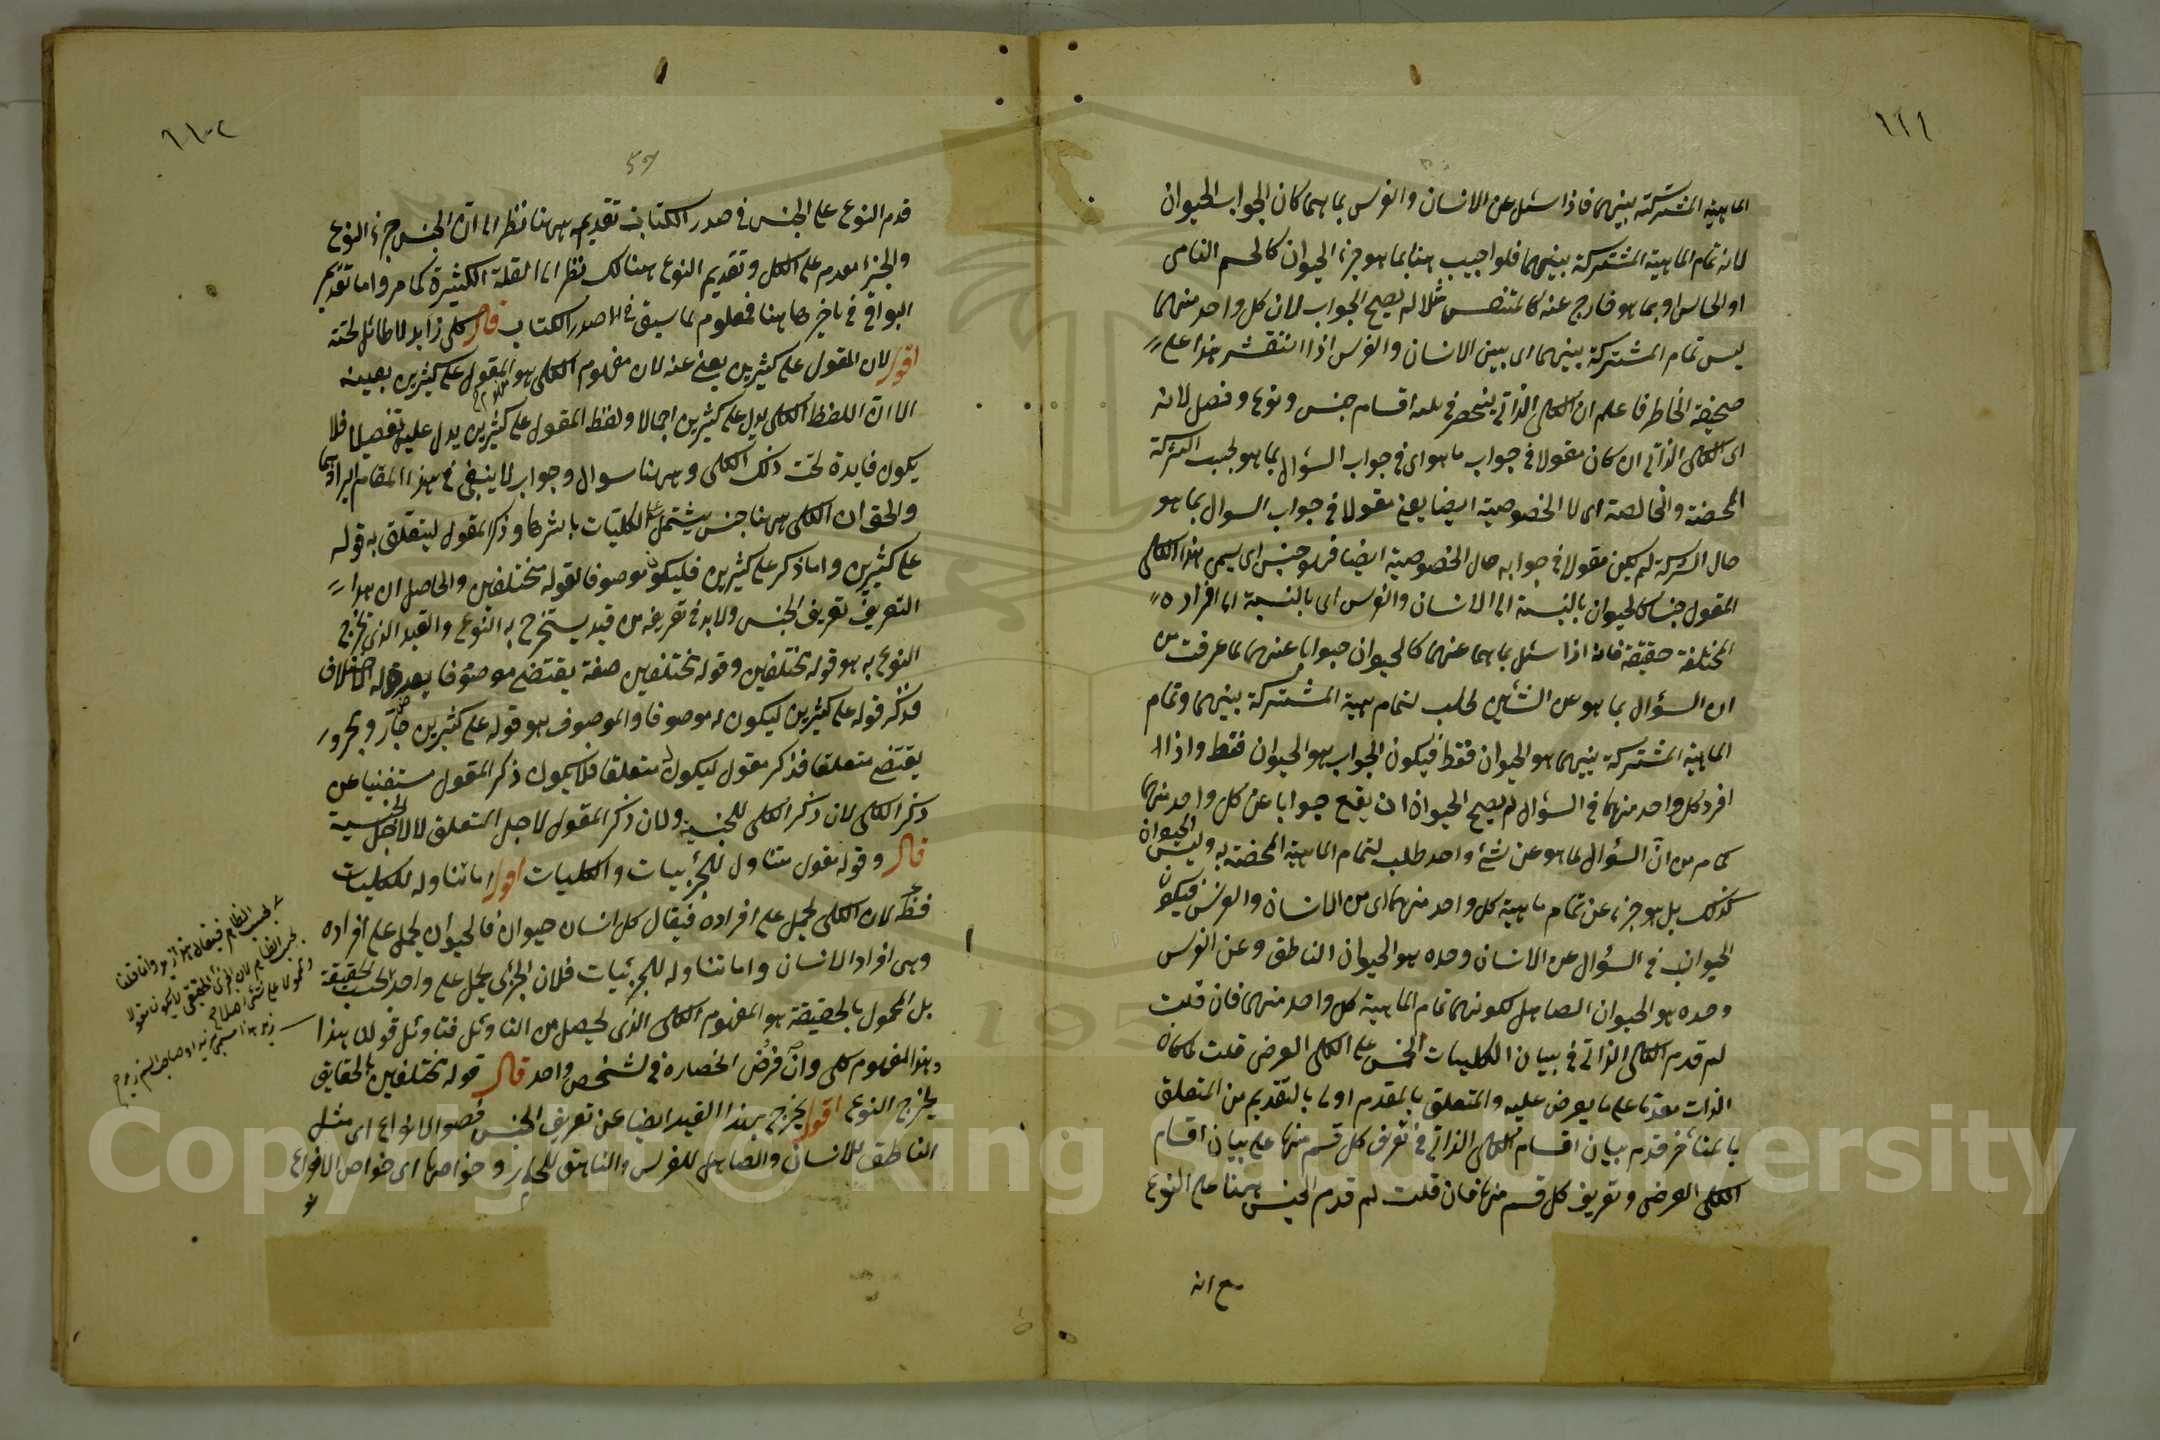 ١١١
الماهية المشتركة بينهما فاذا سئل عن الانسان والفرس بما هما كان الجواب الحيوان
لانه تمام الماهية المشتركة بينهما فلو اجيب هنا بما هو جزء الحيوان كالجسم النامى
او الحساس او بما هو خارج عنه كالمتنفس مثلا لم يصح الجواب لان كل واحد منهما
ليس تمام المشتركة بينهما اى بين الانسان والفرس اذا انتقش هذا على
صحيفة الخاطر فاعلم ان الكلى الذاتى ينحصر فى ثلثه اقسام جنس ونوع وفصل لانه
اى الكلى الذاتى ان كان مقولا فى جواب ما هو اى فى جواب السؤال بما هو بحسب الشركة
المحضة والخالصة اى لا الخصوصية ايضا يعنى مقولا فى جواب السوال بما هو
حال الشركة لم يكن مقولا فى جوابه حال الخصوصية ايضا فهو جنس اى يسمى هذا الكلى
المقول جنسا كالحيوان بالنسبة الى الانسان والفرس اى بالنسبة الى افراده
المختلفة حقيقة فانه اذا سئل بما هما عنهما كالحيوان جوابا عنهما لما عرفت من
ان السؤال بما هو عن الشئين طلب لتمام مهية المشتركة بينهما وتمام
الماهية المشتركة بينهما هو الحيوان فقط فيكون الجواب هو الحيوان فقط واذا
افرد كل واحد منهما فى السؤال لم يصح الحيوان ان يقع جوابا عن كل واحد منهما
كما مر من ان السؤال بما هو عن شئ واحد طلب لتمام الماهية المختصة به وليس الحيوان
كذلك بل هو جزء عن تمام ماهية كل واحد منهما اى من الانسان والفرس فيكون
الجواب فى السؤال عن الانسان وحده هو الحيوان الناطق وعن الفرس
وحده هو الحيوان الصاهل لكونهما تمام الماهية كل واحد منهما فان قلت
لم قدم الكلى الذاتى فى بيان الكليات الخمس على الكلى العرضى قلت لما كان
الذات مقدما على ما يعرض عليه والمتعلق بالمقدم اولى بالتقديم من المتعلق
بالمتأخر قدم بيان اقسام الكلى الذاتى فى تعريف كل قسم منها على بيان اقسام
الكلى العرضى وتعريف كل قسم منها فان قلت لم قدم الجنس ههنا على النوع
مع انه
قدم النوع على الجنس فى صدر الكتاب تقديمه ههنا نظر الى ان الجنس جزء النوع
والجزء مقدم على الكل وتقديم النوع هنالك نظر الى القلة الكثيرة كما مر واما تقديم
البواقى فى تأخيرها هنا فمعلوم لما سبق فى صدر الكتاب قال كلى زايد لا طائل تحته
اقول لان المقول على كثيرين يغنى عنه لان مفهوم الكلى هو المقول على كثيرين بعينه
الا ان اللفظ الكلى يدل على كثيرين اجمالا ولفظ المقول على كثيرين يدل عليه تفصيلا فلا
يكون فايدة تحت ذلك الكلى وههنا سوال وجواب لا ينبغى فى هذا المقام ايرادهما
والحق ان الكلى ههنا جنس يشتمل على الكليات باسرها وذكر المقول ليتعلق به قوله
على كثيرين واما ذكر على كثيرين فليكون موصوفا لقوله مختلفين والحاصل ان هذا
التعريف تعريف الجنس ولابد فى تعريفه من قيد يستخرج به النوع والقيد الذى يخرج
النوع به هو قوله مختلفين وقوله مختلفين صفة يقتضى موصوفا
فذكر قوله على كثيرين ليكون له موصوفا والموصوف هو قوله على كثيرين جار ومجرور
يقتضى متعلقا فذكر مقول ليكون متعلقا فلا يكون ذكر المقول مستغنيا عن
ذكر الكلى لان ذكر الكلى للجنسية ولان ذكر المقول لاجل المتعلق لا لاجل الجنسية
قال وقوله مقول متناول للجزئيات والكليات اقول اما تناوله للكليات
فظ لان الكلى يحمل على افراده فيقال كل انسان حيوان فالحيوان يحمل على افراده
وهى افراد الانسان واما تناوله للجزئيات فلان الجزئى يحمل على واحد بحسب الحقيقة
بل المحمول بالحقيقة هو المفهوم الكلى الذى يحصل من التاويل فتاويل قولك هذا
وهذا المفهوم كلى وان فرض انحصاره فى شخص واحد قال قوله مختلفين بالحقايق
يخرج النوع اقول يخرج بهذا القيد ايضا عن تعريف الجنس فصول الانواع اى مثل
الناطق للانسان والصاهل للفرس والناهق للحمار وخواصها اى خواص الانواع
Copyright © King Saud University